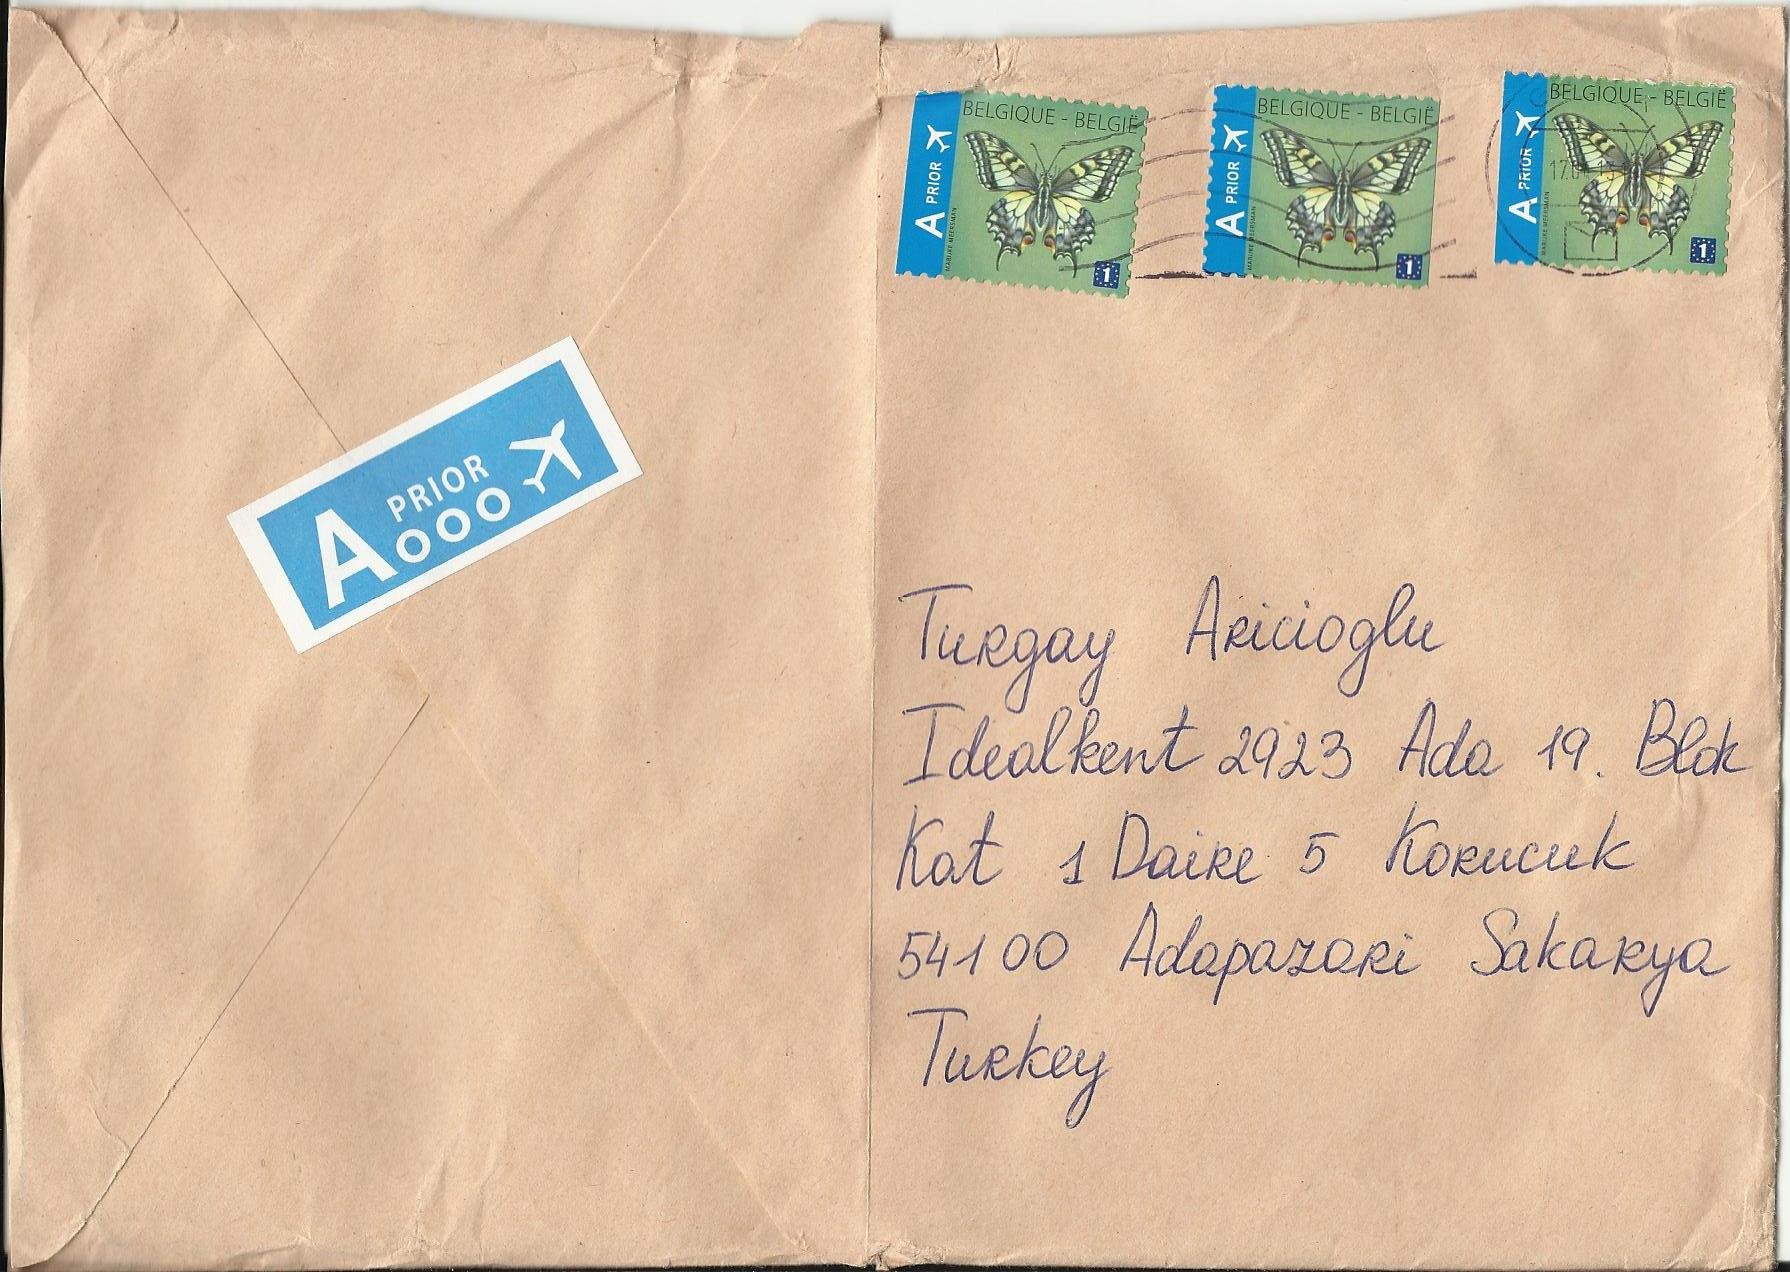 A PRIOR
BELGIQUE - BELGIË
A PRIOR
MARIJKE MEERSMAN
1
BELGIQUE - BELGIË
A PRIOR
MARIJKE MEERSMAN
1
BELGIQUE - BELGIË
A PRIOR
MARIJKE MEERSMAN
1
Turgay Aricioglu
Idealkent 2923 Ada 19. Blok
Kat 1 Daire 5 Korucuk
54100 Adapazari Sakarya
Turkey